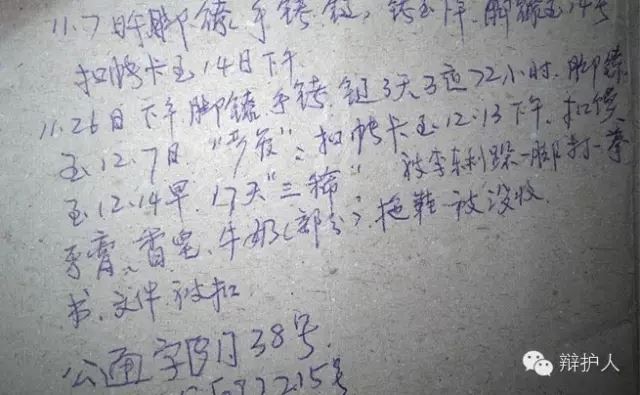 11.7日午脚镣、手铐、链，铐至下午，脚镣至14号
扣购卡至14日下午.
11.26日下午脚镣、手铐、链3天3夜72小时.脚镣
至.12.7日."严管"：扣购卡至.12.13下午.扣馍
至.12.14早.17天"三稀" 被李东利跺一脚打一拳
牙膏、香皂、牛奶(部分)、拖鞋被没收.
书、文件被扣
公通字[ ]38号.
2215号
辩护人